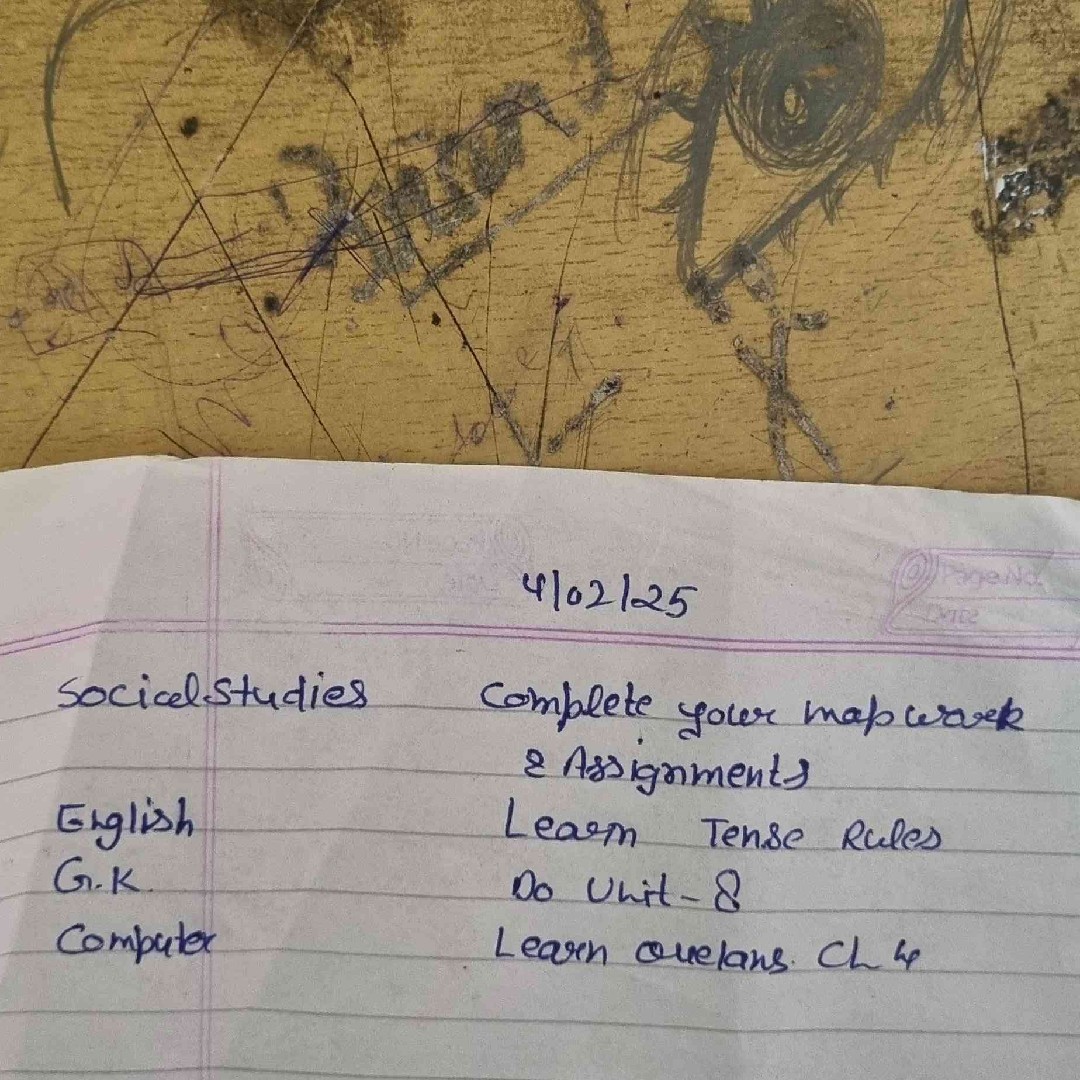 4/02/25
Social Studies Complete your map work
& Assignments
English Learn Tense Rules
G.K. Do Unit - 8
Computer Learn que/ans. Ch 4